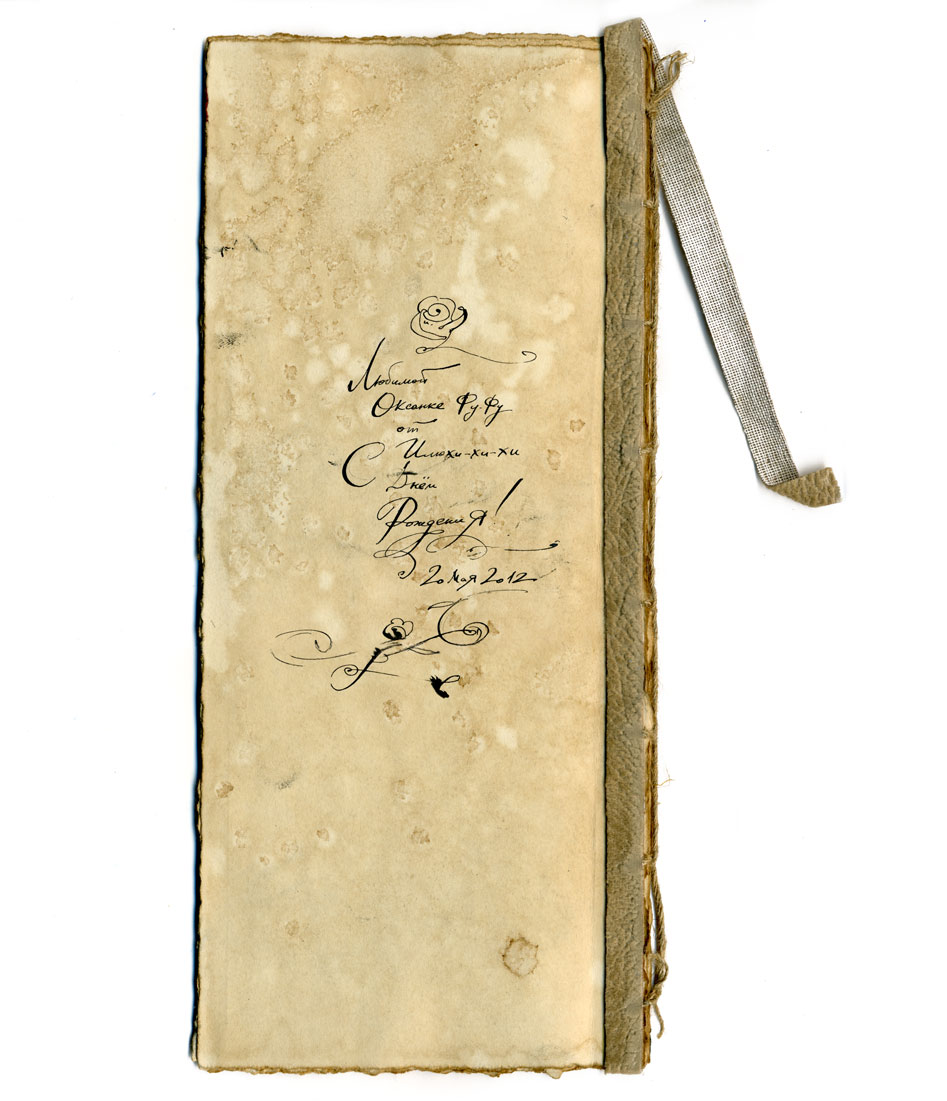 Любимой
Оксанке Фу-Фу
от
Илюхи-хи-хи
С Днём
Рождения!
20 мая 2012